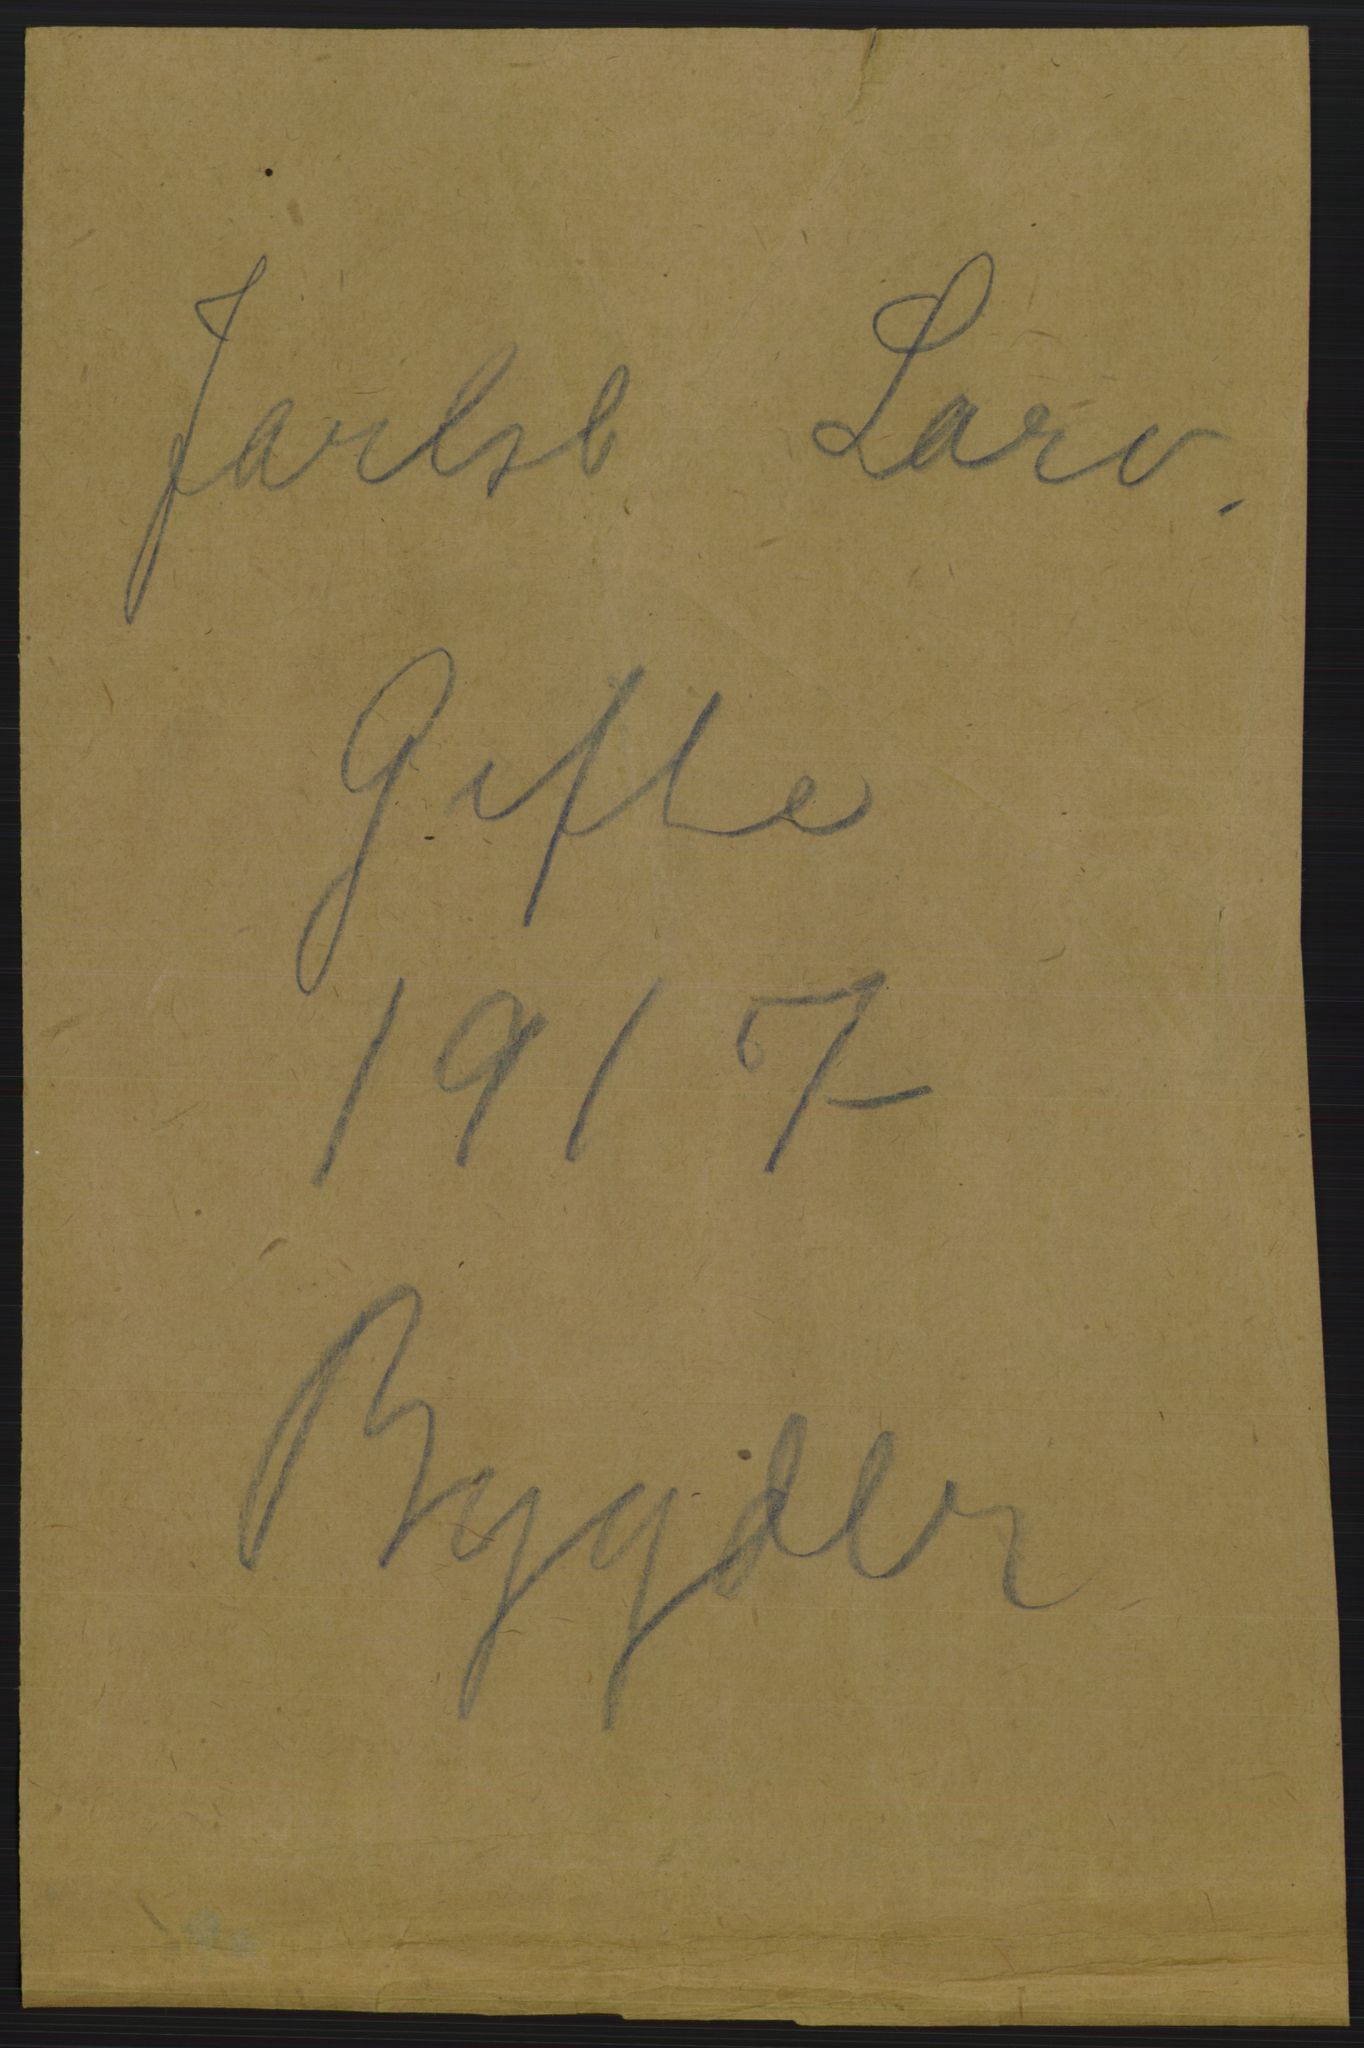 Jarlsb Larv.
Gifte
1917
Bygder